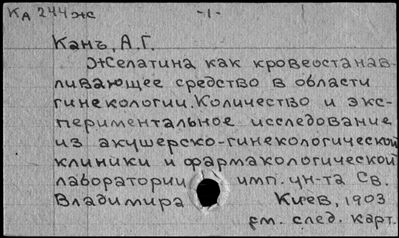 Кд 244ж -1-
Канъ, А.Г.
Желатина как кровеостанав-
ливающее средство в области
гинекологии. Количество и экс-
периментальное исследование
из акушерско-гинекологической
клиники и фармакологической
лаборатории имп. ун-та Св.
Владимира Киев, 1903
см. след. карт.